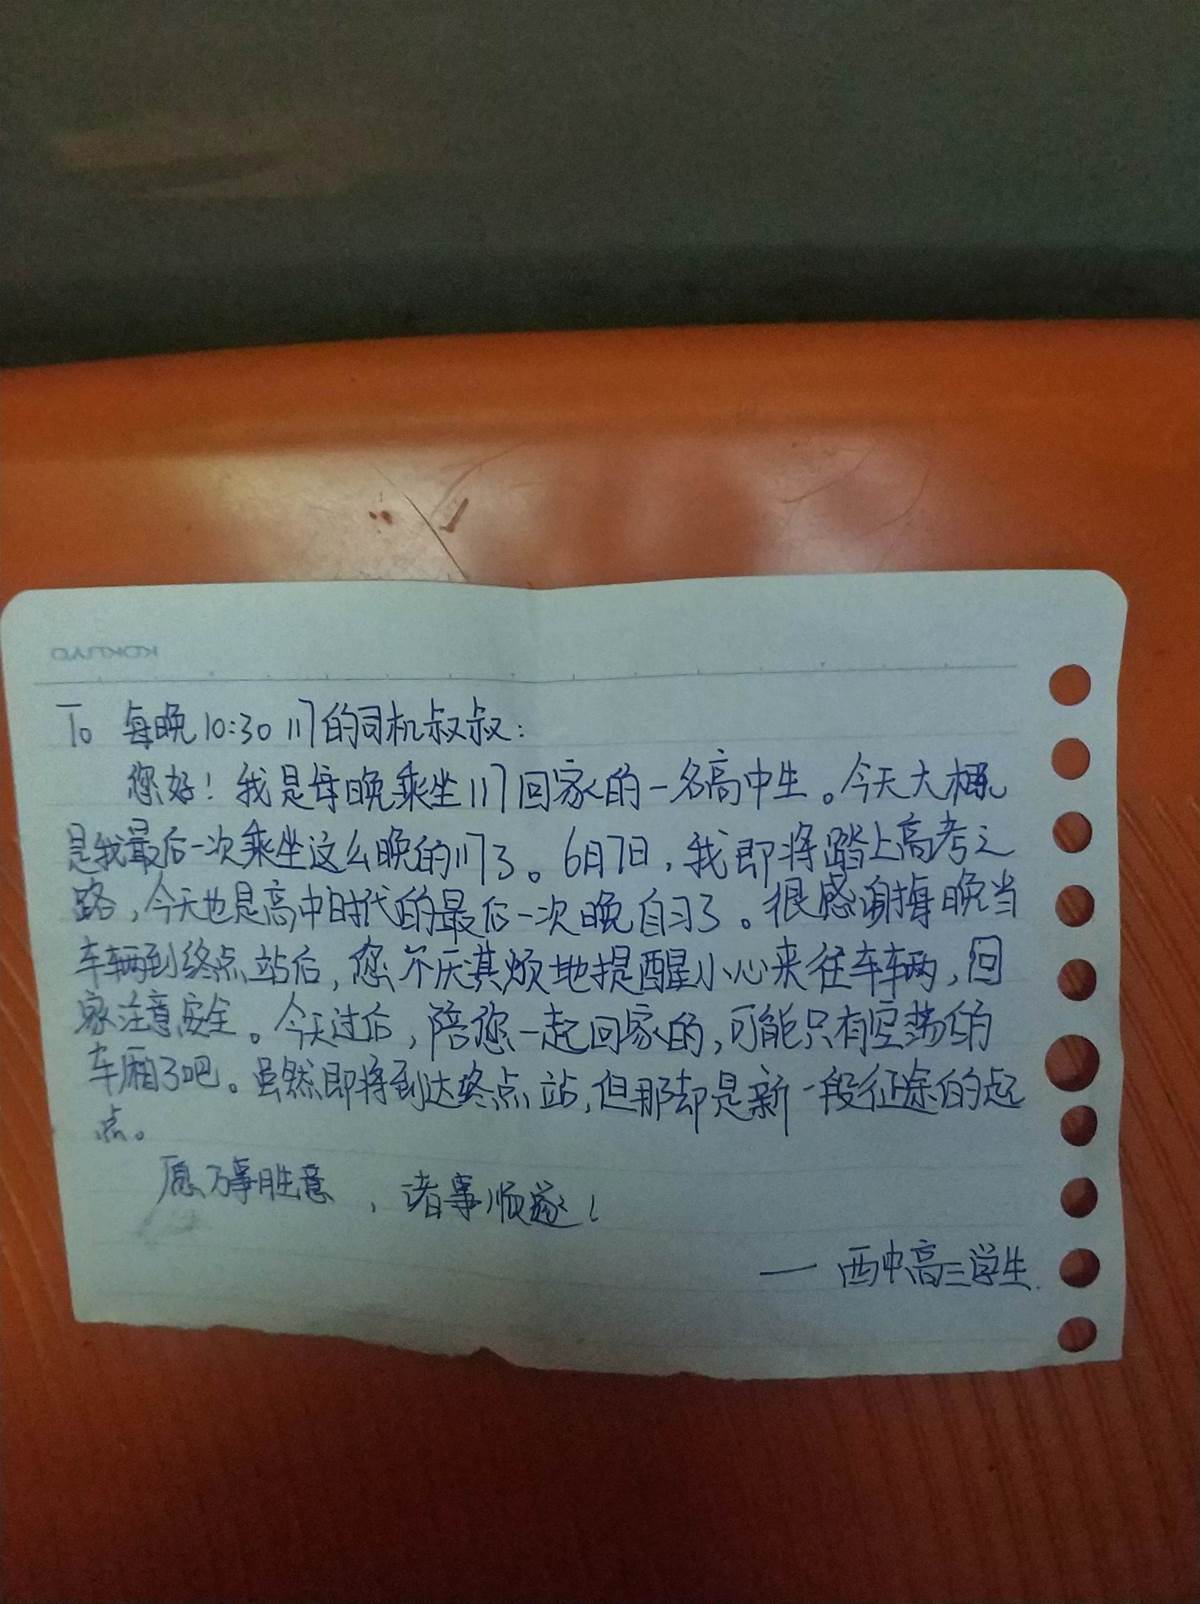 KOKUYO
To 每晚10:30 117的司机叔叔:
您好!我是每晚乘坐117回家的一名高中生。今天大概
是我最后一次乘坐这么晚的117了。6月7日,我即将踏上高考之
路,今天也是高中时代的最后一次晚自习了。很感谢每晚当
车辆到终点站后,您不厌其烦地提醒小心来往车辆,回
家注意安全。今天过后,陪您一起回家的,可能只有空荡的
车厢了吧。虽然即将到达终点站,但那却是新一段征途的起
点。
愿万事胜意,诸事顺遂!
— 西中高三学生